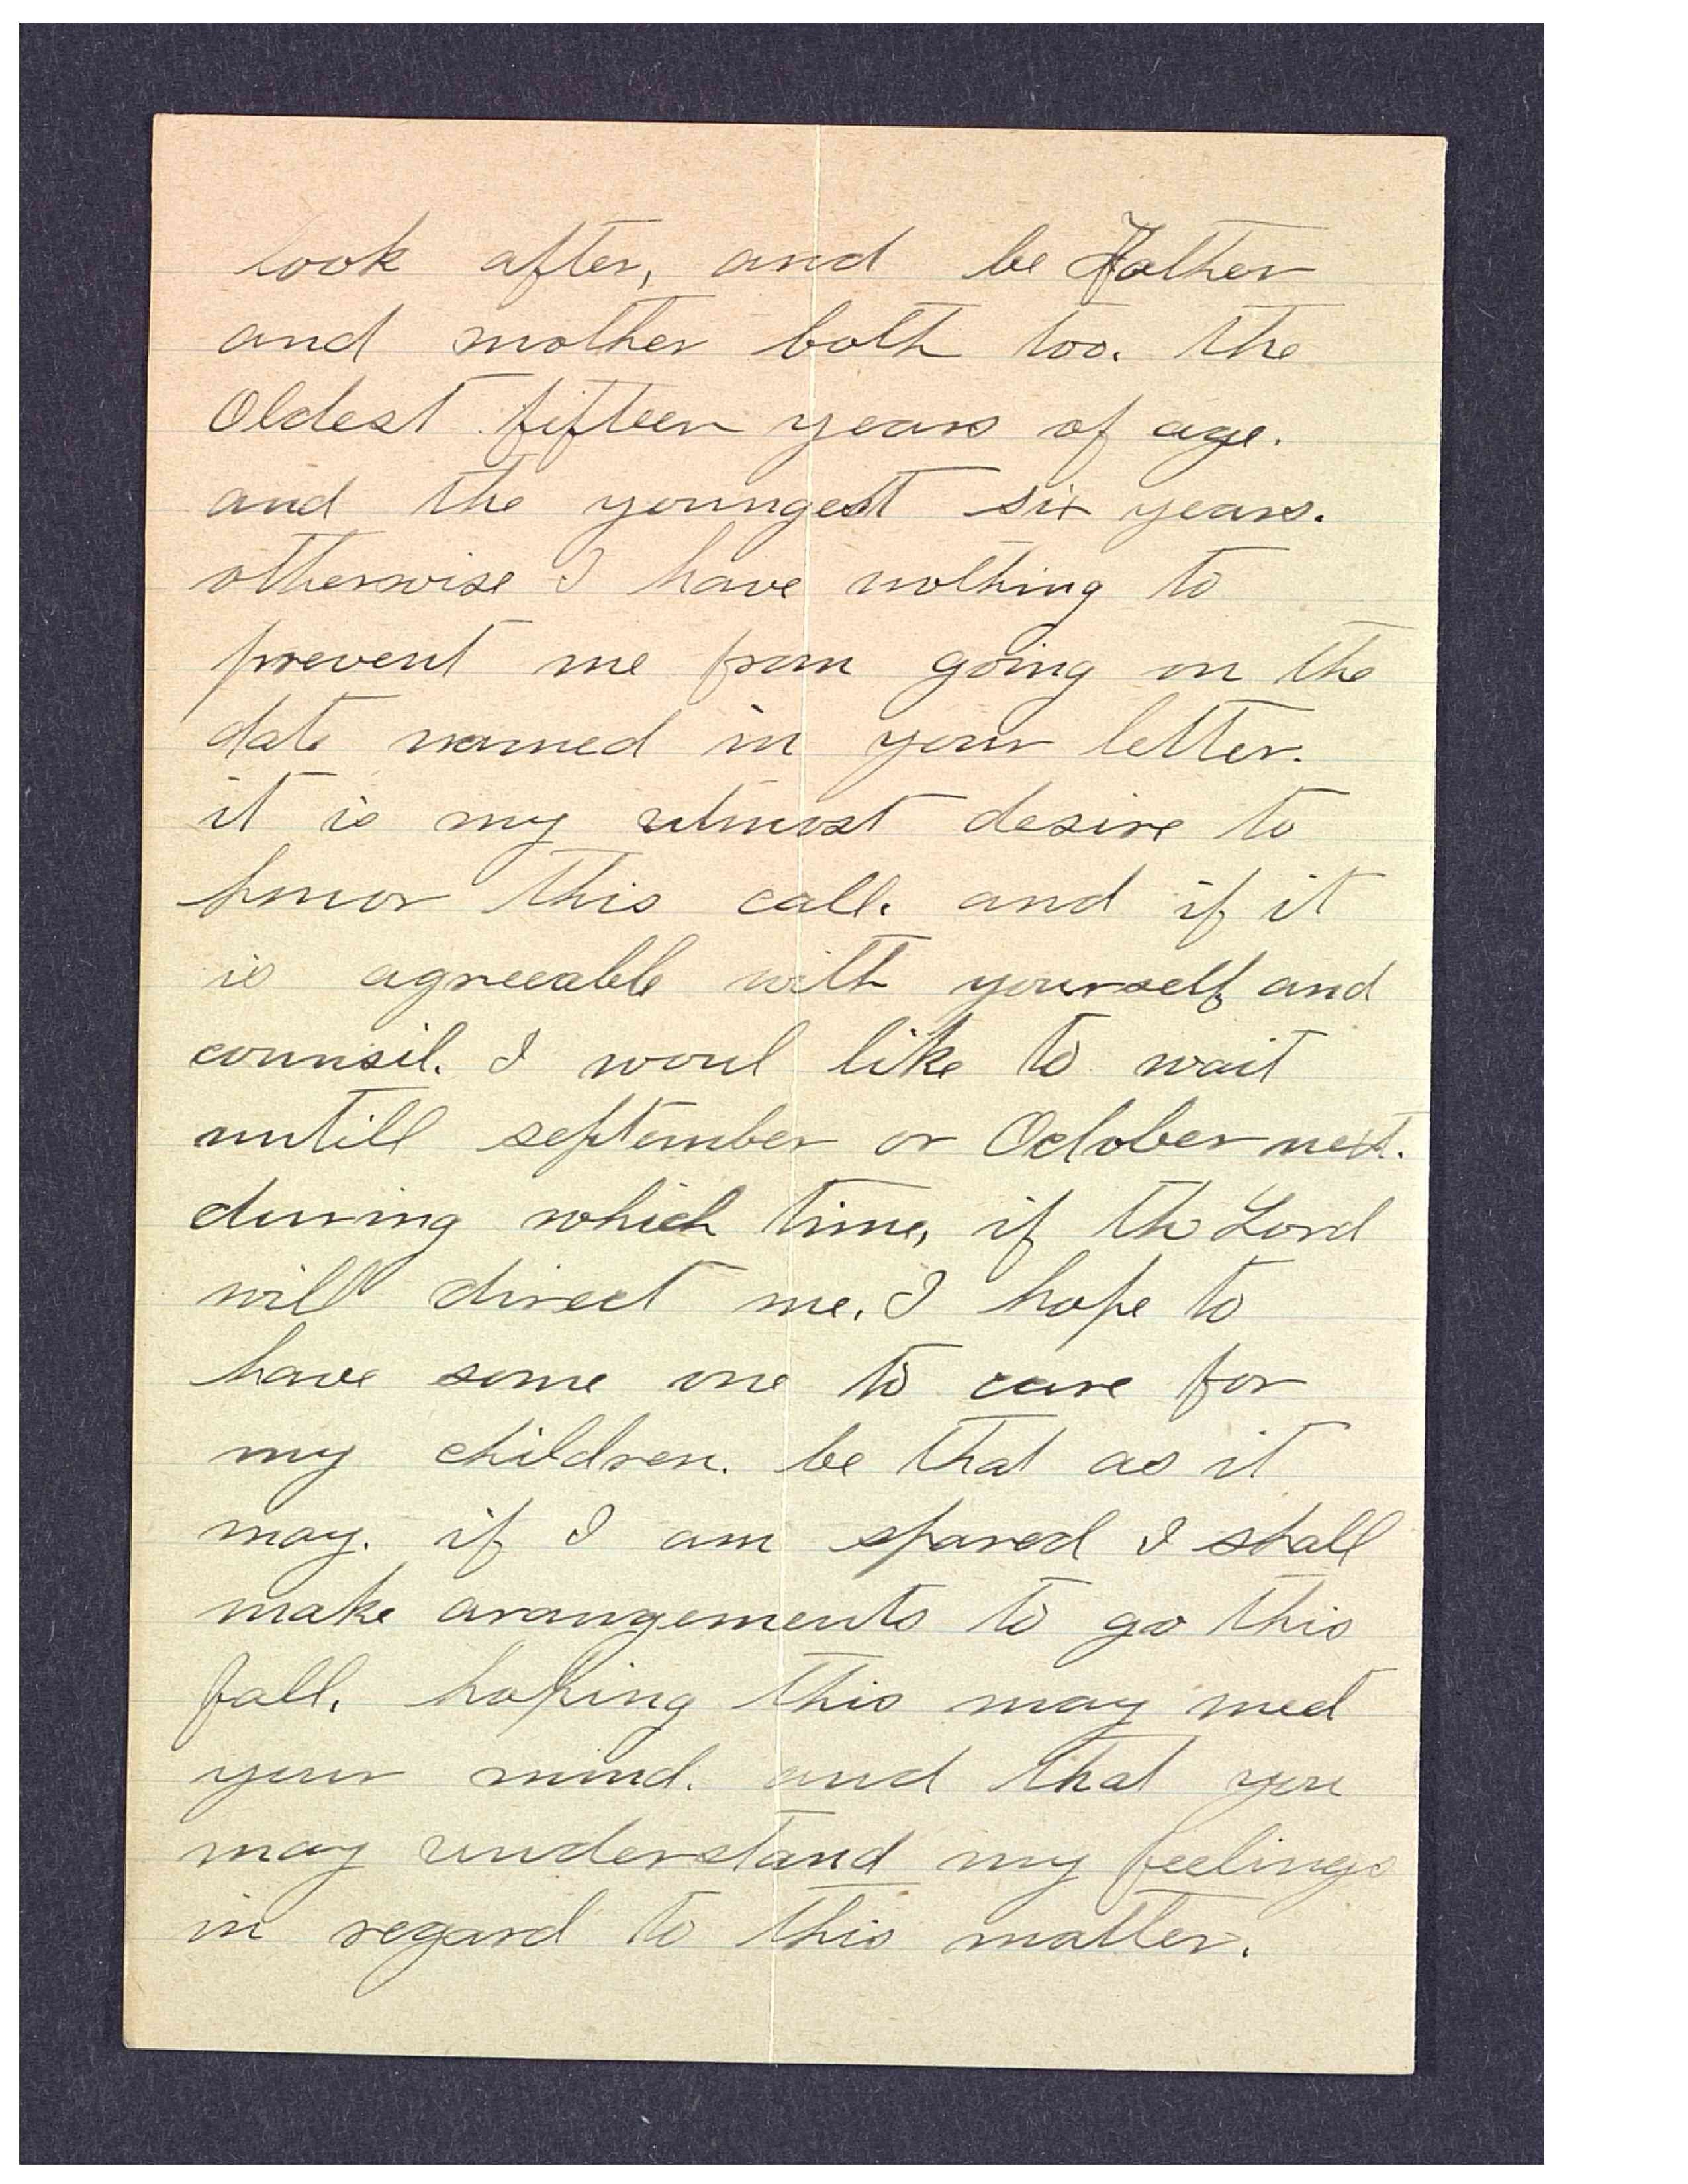 look after, and be Father
and mother both too. the
Oldest fifteen years of age.
and the youngest six years.
otherwise I have nothing to
prevent me from going on the
date named in your letter.
it is my utmost desire to
honor this call. and if it
is agreeable with yourself and
counsil. I woul like to wait
untill september or October next.
during which time, if the Lord
will direct me. I hope to
have some one to care for
my children. be that as it
may. if I am spared I shall
make arangements to go this
fall. hoping this may meet
your mind. and that you
may understand my feelings
in regard to this matter.